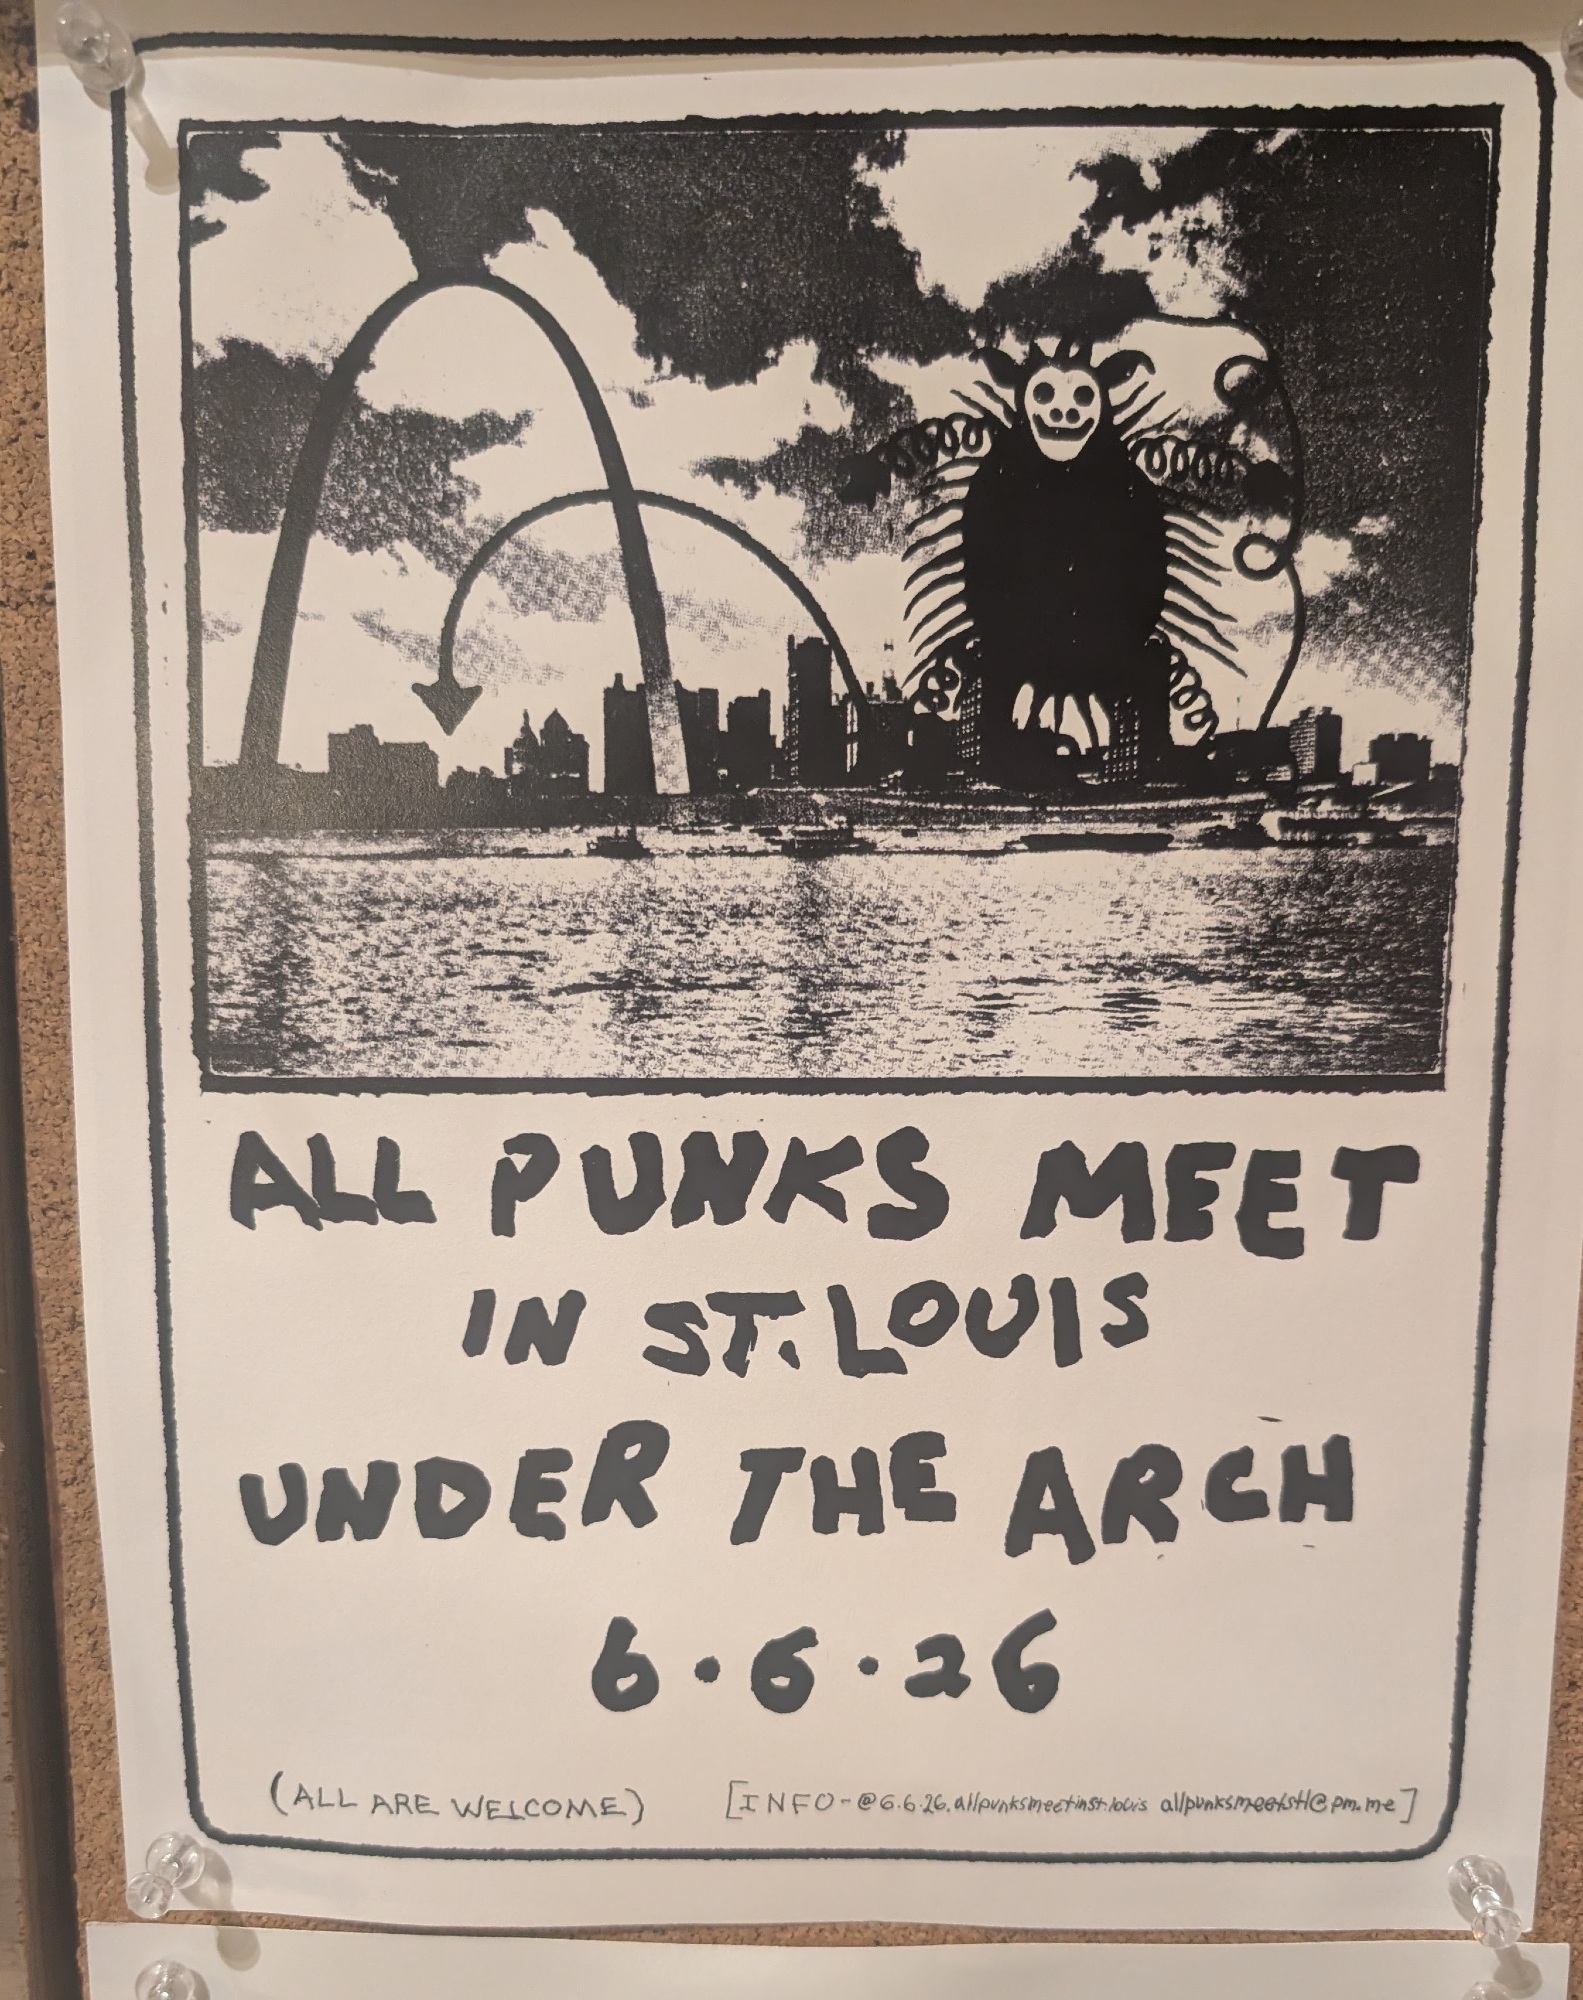 ALL PUNKS MEET
IN ST. LOUIS
UNDER THE ARCH
6·6·26
(ALL ARE WELCOME) [INFO-@6.6.26.allpunksmeetinst.louis allpunksmeetstl@pm.me]